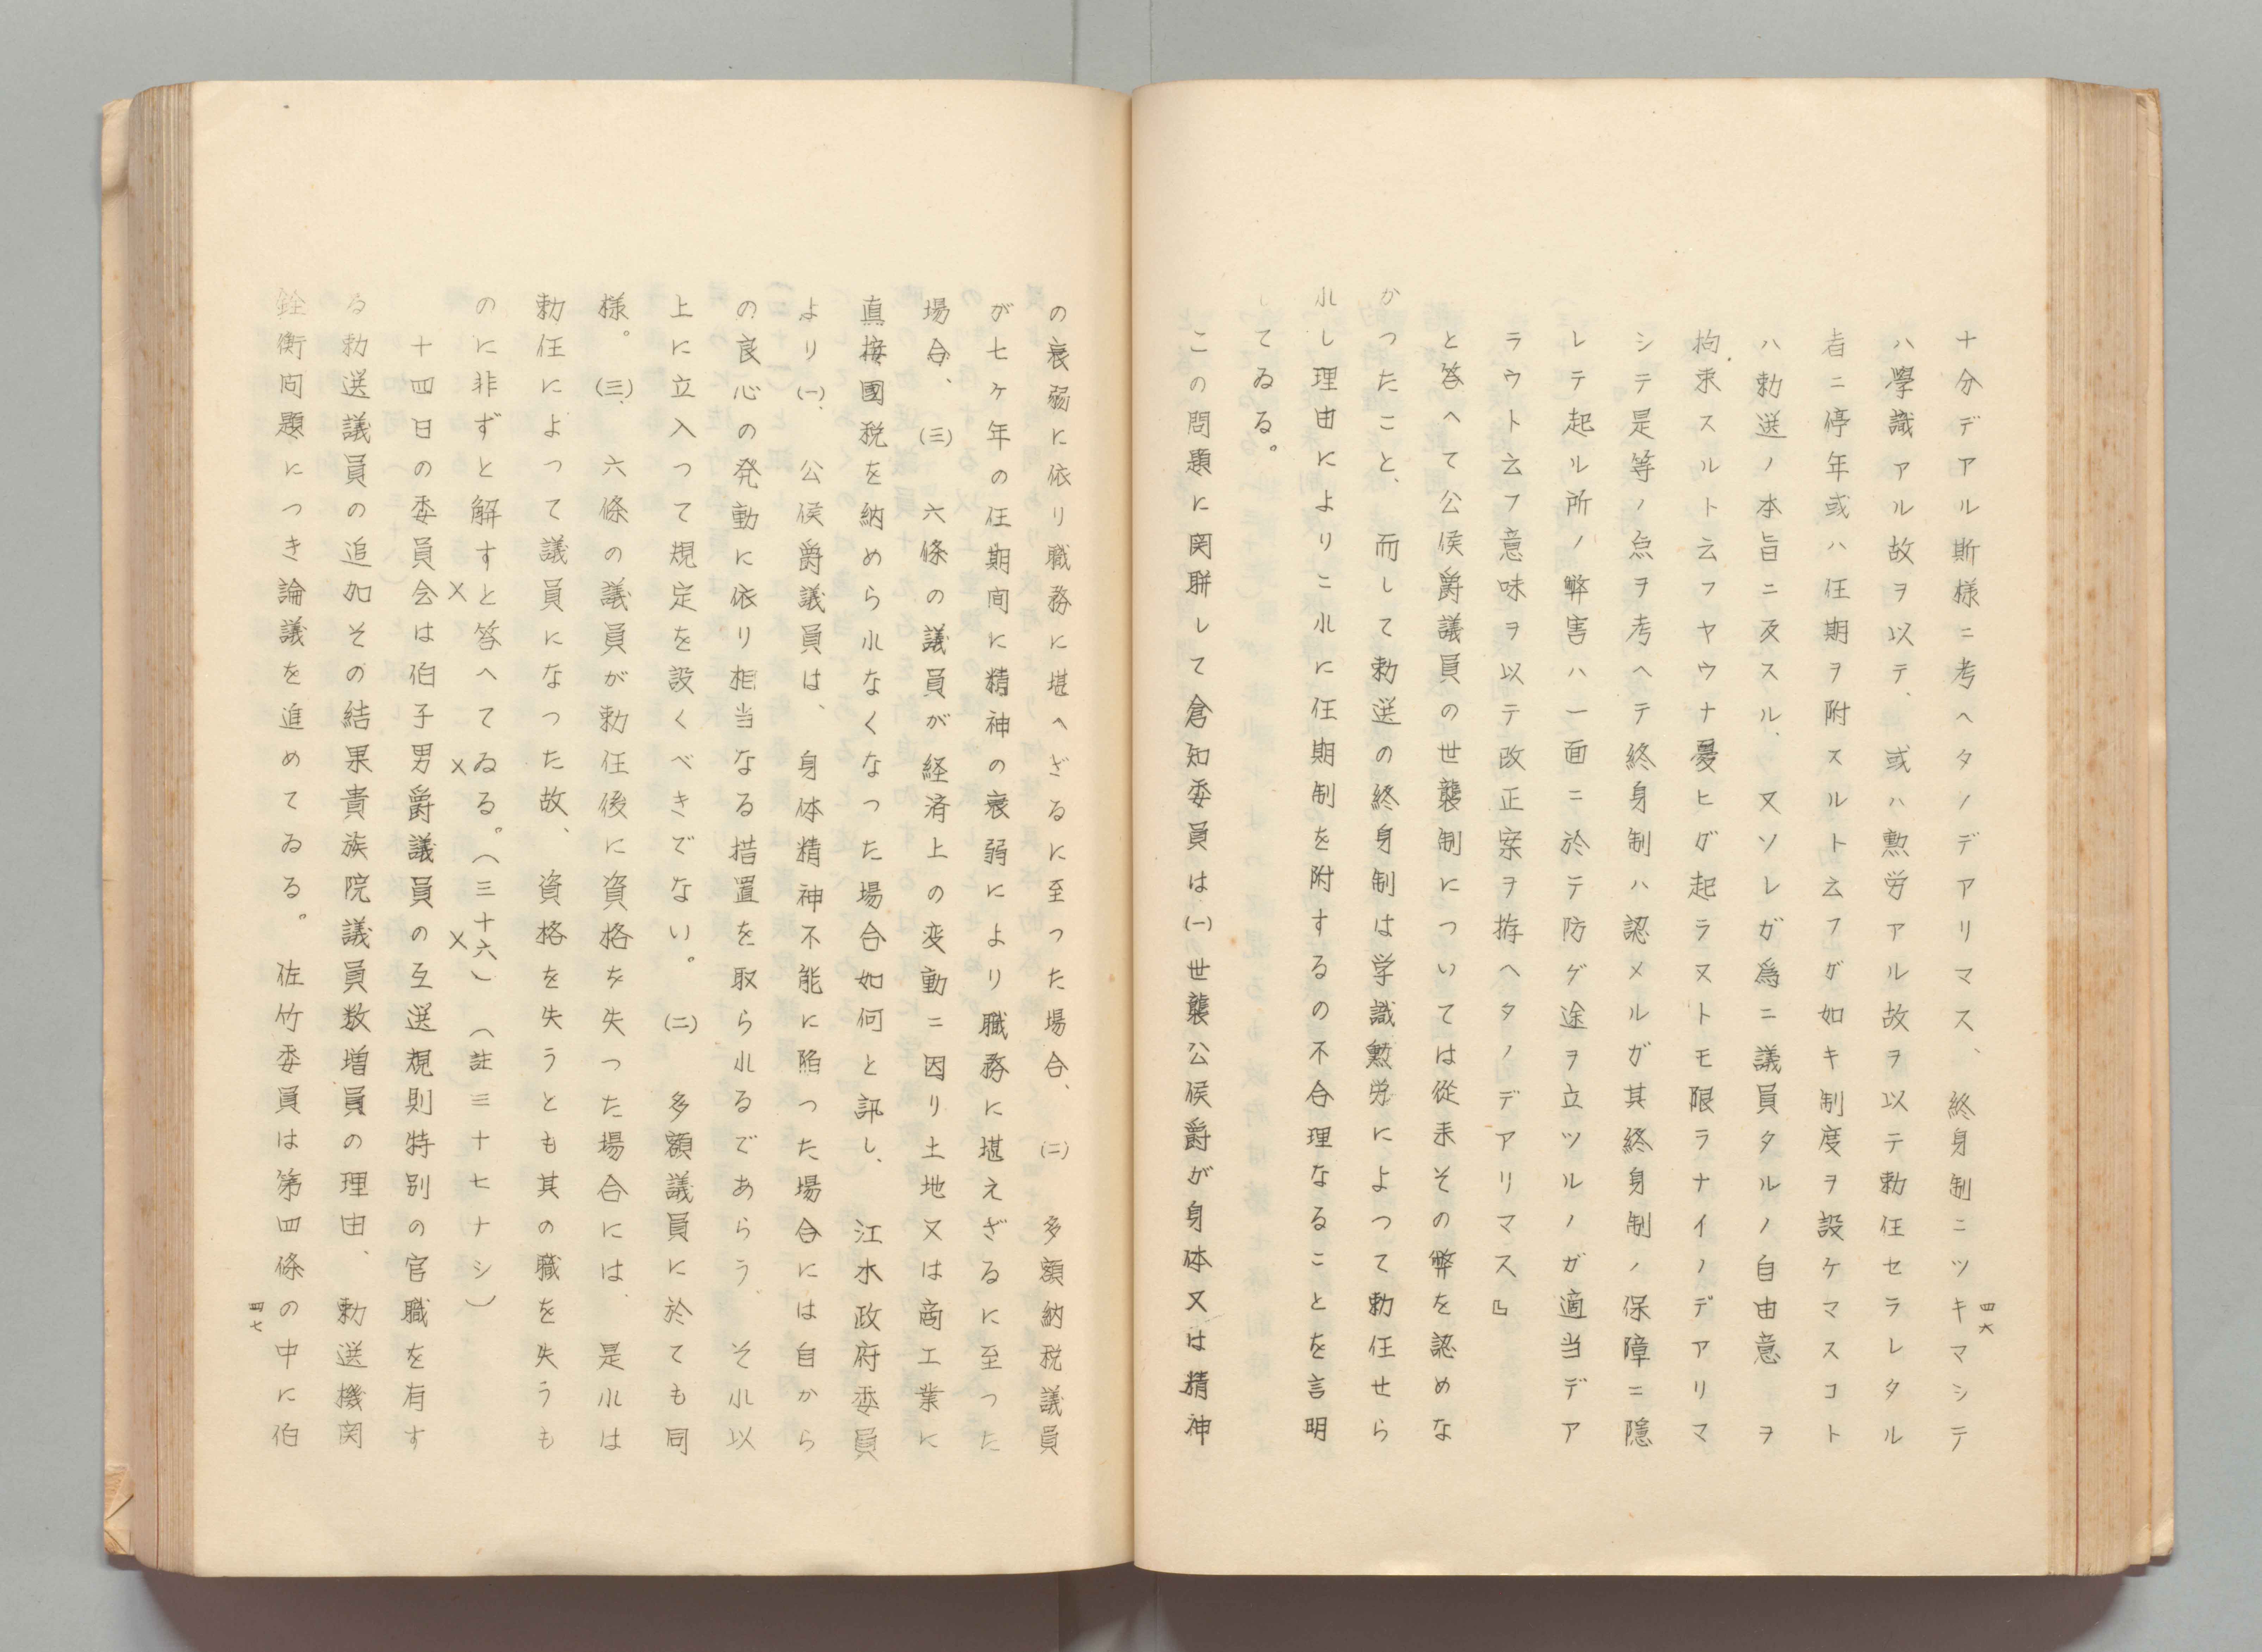 十分デアル斯様ニ考ヘタノデアリマス、終身制ニツキマシテ
ハ學識アル故ヲ以テ、或ハ勲労アル故ヲ以テ勅任セラレタル
者ニ停年或ハ任期ヲ附スルト云フガ如キ制度ヲ設ケマスコト
ハ勅選ノ本旨ニ反スル、又ソレガ爲ニ議員タルノ自由意ヲ
拘束スルト云フヤウナ憂ヒガ起ラヌトモ限ラナイノデアリマ
シテ是等ノ点ヲ考ヘテ終身制ハ認メルガ其終身制ノ保障ニ隠
レテ起ル所ノ弊害ハ一面ニ於テ防グ途ヲ立ツルノガ適当デア
ラウト云フ意味ヲ以テ改正案ヲ拵ヘタノデアリマス』
と答へて公侯爵議員の世襲制については從来その弊を認めな
かつたこと、而して勅選の終身制は学識勲労によつて勅任せら
れし理由によりこれに任期制を附するの不合理なることを言明
してゐる。
この問題に関聯して倉知委員は(一)世襲公侯爵が身体又は精神
四六
の衰弱に依り職務に堪へざるに至つた場合、(二)多額納税議員
が七ヶ年の任期間に精神の衰弱により職務に堪えざるに至つた
場合、(三)六條の議員が経済上の変動ニ因り土地又は商工業に
直接國税を納められなくなつた場合如何と訊し、江木政府委員
より(一)、公侯爵議員は、身体精神不能に陥つた場合には自から
の良心の発動に依り相当なる措置を取られるであらう、それ以
上に立入つて規定を設くべきでない。(二)多額議員に於ても同
様。(三)、六條の議員が勅任後に資格を失つた場合には、是れは
勅任によつて議員になつた故、資格を失うとも其の職を失うも
のに非ずと解すと答へてゐる。(三十六)(註三十七ナシ)
×××
十四日の委員会は伯子男爵議員の互選規則特別の官職を有す
る勅選議員の追加その結果貴族院議員数増員の理由、勅選機関
銓衡問題につき論議を進めてゐる。佐竹委員は第四條の中に伯
四七